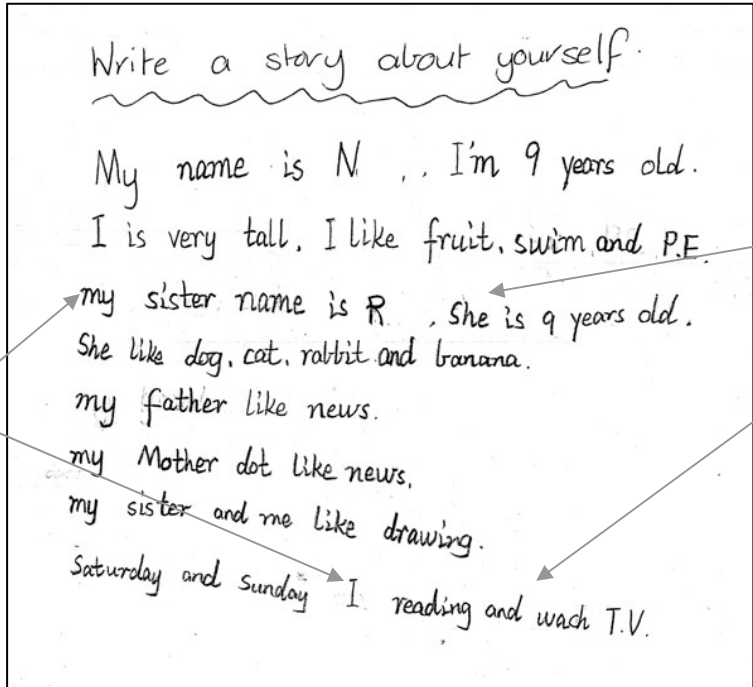 Write a story about yourself.
My name is N .. I'm 9 years old.
I is very tall. I like fruit, swim and P.E.
my sister name is R . She is 9 years old.
She like dog, cat, rabbit and banana.
my father like news.
my Mother dot like news.
my sister and me like drawing.
Saturday and Sunday I reading and wach T.V.